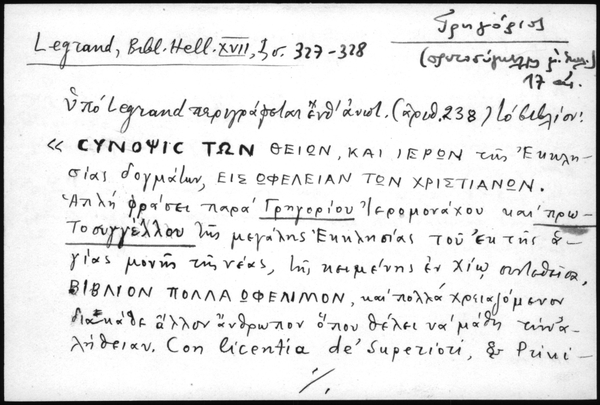 Γρηγόριος
Legrand, Bibl. Hell. XVII, 1 σ. 327-328
(πρωτοσύγκελλος μ. Ἐκκλ.)
17 αι.
ὑπό Legrand περιγράφεται ἔνθ' ἀνωτ. (ἀριθ. 238) τό βιβλίον:
« CΥΝΟΨΙC ΤΩΝ ΘΕΙΩΝ, ΚΑΙ ΙΕΡΩΝ τῆς Ἐκκλη-
σίας δογμάτων, ΕΙΣ ΩΦΕΛΕΙΑΝ ΤΩΝ ΧΡΙΣΤΙΑΝΩΝ.
Ἁπλῇ φράσει παρά Γρηγορίου Ἱερομονάχου καί πρω-
τοσυγγέλλου τῆς μεγάλης Ἐκκλησίας τοῦ ἐκ τῆς ἁ-
γίας μονῆς τῆς νέας, τῆς κειμένης ἐν Χίῳ συντεθεῖσα,
ΒΙΒΛΙΟΝ ΠΟΛΛΑ ΩΦΕΛΙΜΟΝ, καί πολλά χρειαζόμενον
διά κάθε ἄλλον ἄνθρωπον ὅπου θέλει νά μάθῃ τήν ἀ-
λήθειαν. Con licentia de' Superiori, & Privi-
./.